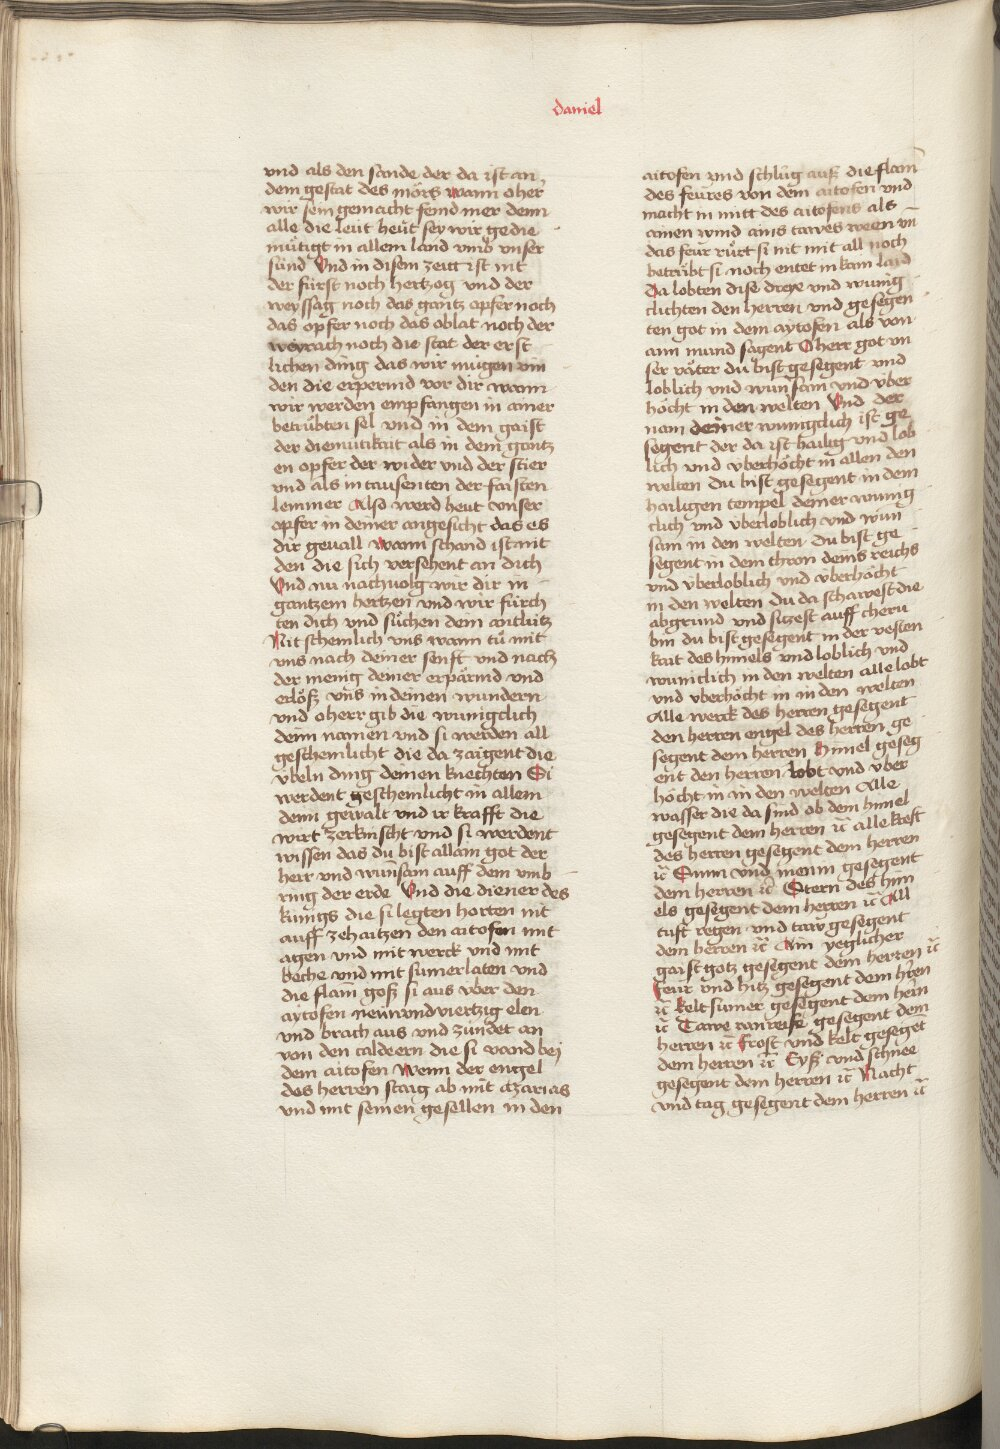 daniel
vnd als den sande der da ist an
dem gestat des mörs wann o her
wir sein gemacht femd mer denn
alle die leut heüt sey wir gedie
mütigt in allem land vmb vnser
sünd Vnd in disem zeitt ist nit
der fürst noch hertzog vnd der
weyssag noch das gantz opfer noch
das opfer noch das oblat noch der
weyrach noch die stat der erst
lichen ding das wir mügen vin
den die erpermd vor dir wann
wir werden empfangen in ainer
betrübten sel vnd in dem gaist
der diemütikait als in dem gantz
en opfer der wider vnd der stier
vnd als in tausenten der faisten
lemmer Also werd heut vnser
opfer in deiner angesicht das es
dir geuall wann schand ist nit
den die sich versehent an dich
Vnd nu nachuolg wir dir in
gantzem hertzen vnd wir fürch
ten dich vnd süchen dein antlütz
Nit schemlich vns wann tü mit
vns nach deiner senft vnd nach
der menig deiner erpärmd vnd
erlöß vns in deinen wundern
vnd o herr gib die wunigclich
deim namen vnd si werden all
geschemlicht die da zaigent die
vbeln ding deinen knechten Si
werdent geschemlicht in allem
deim gewalt vnd ir krafft die
wirt zerknischt vnd si werdent
wissen das du bist allain got der
herr vnd wunsam auff dem vmb
ring der erde Vnd die diener des
künigs die si legten horten nit
auff zehaitzen den aitofen mit
agen vnd mit werck vnd mit
beche vnd mit sumerlaten vnd
die flam̄ goß si aus vber den
aytofen neunvndviertzig elen
vnd brach aus vnd zündet an
von den caldeern die si vand bej
dem aitofen Wenn der engel
des herren staig ab mit Azarias
vnd mit seinen gesellen in den
aitofen vnd schlüg auß die flam̄
des feüres von dem aitofen vnd
macht in mitt des aitofens als
ainen wind ains tawes ween vn̄
das feür rürt si nit mit all noch
betrübt si noch entet in kain laid
Da lobten dise dreye vnd wunig
clichten den herren vnd gesegen
ten got in dem aytofen als von
aim mund sagent O herr got vn
ser väter du bist gesegent vnd
loblich vnd wunsam vnd vber
höcht in den welten Vnd der
nam deiner wunigclich ist ge
segent der da ist hailig vnd lob
lich vnd vberhöcht in allen den
welten du bist gesegent in dem
hailigen tempel deiner wunig
clich vnd vberloblich vnd wun
sam in den welten du bist ge
segent in dem thron deins reichs
vnd vberloblich vnd vberhöcht
in den welten du da schawest die
abgrund vnd sitzest auff cheru
bin du bist gesegent in der vesten
kait des himels vnd loblich vnd
wuniclich in den welten alle lobt
vnd vberhöcht in in den welten
Alle werck des herren gesegent
den herren engel des herren ge
segent dem herren Himel geseg
ent den herren lobt vnd vber
höcht in in den welten Alle
wasser die da sind ob dem himel
gesegent dem herren ꝛc̄ alle kreft
des herren gesegent dem herren
ꝛc̄ Sunn vnd menin gesegent
dem herren ꝛc̄ Stern des him
els gesegent dem herren ꝛc̄ All
tuft regen vnd taw gesegent
dem herren ꝛc̄ Ain yeglicher
gaist gotz gesegent dem herren ꝛc̄
Feür vnd hitz gesegent dem hr̄en
ꝛc̄ kelt sumer gesegent dem hern
ꝛc̄ Tawe vnd reife gesegent dem
herren ꝛc̄ Frost vnd kelt gesegēt
dem herren ꝛc̄ Eyß vnd schnee
gesegent dem herren ꝛc̄ Nacht
vnd tag gesegent dem herren ꝛc̄